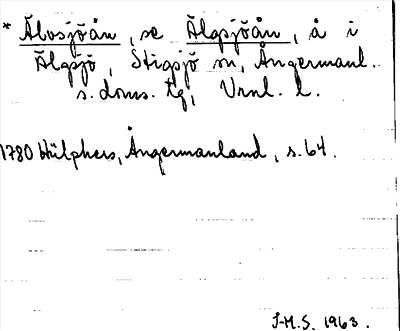 * Älvsjöån, se Älgsjöån, å i
Älgsjö, Stigsjö sn, Ångermanl.
s. doms. tg, Vrnl. l.
1780 Hülphers, Ångermanland, s. 64.
J-M.S. 1963.